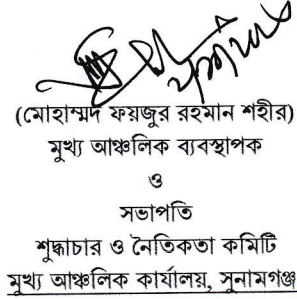 (মোহাম্মদ ফয়জুর রহমান শহীর)
মুখ্য আঞ্চলিক ব্যবস্থাপক
ও
সভাপতি
শুদ্ধাচার ও নৈতিকতা কমিটি
মুখ্য আঞ্চলিক কার্যালয়, সুনামগঞ্জ